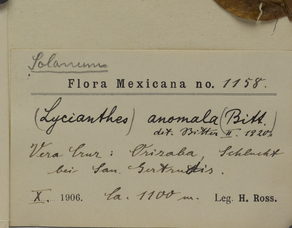 Solanum
Flora Mexicana no. 1158.
(Lycianthes) anomala (Bitt.)
det. Bitter II. 1920
Vera Cruz: Orizaba, Schlucht
bei San Gertrudis.
X. 1906. Ca. 1100 m. Leg. H. Ross.